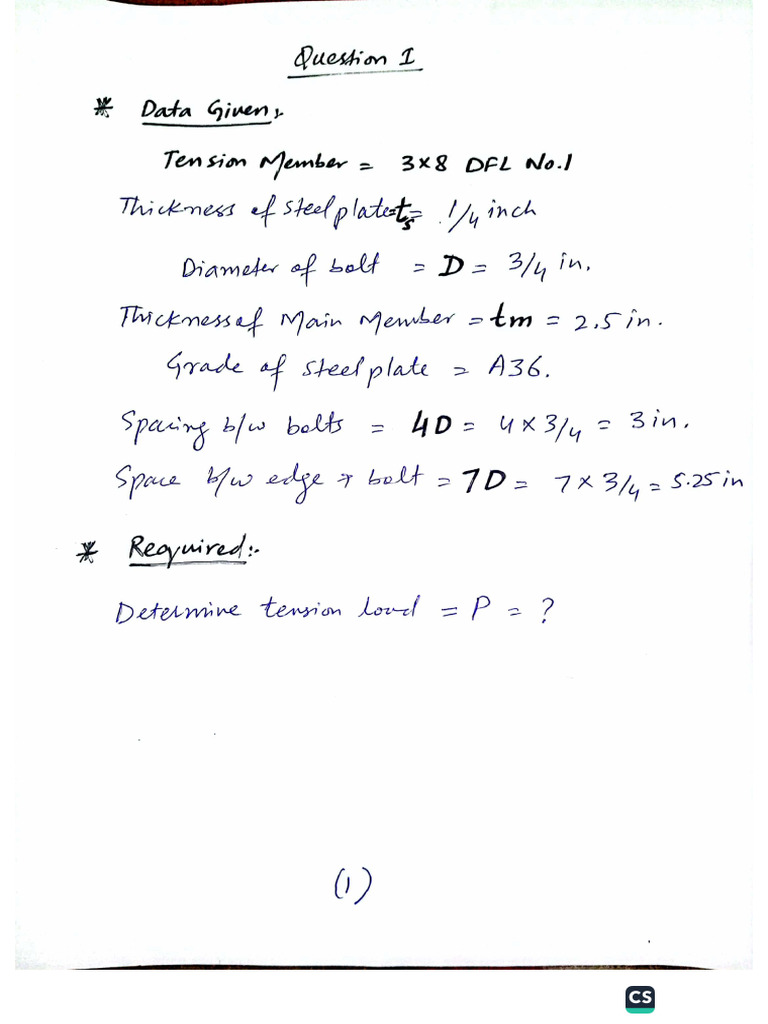 Question 1
* Data Given:
Tension Member = 3×8 DFL No.1
Thickness of steel plate = ts = 1/4 inch
Diameter of bolt = D = 3/4 in.
Thickness of Main Member = tm = 2.5 in.
Grade of steel plate = A36.
Spacing b/w bolts = 4D = 4 × 3/4 = 3 in.
Space b/w edge & bolt = 7D = 7 × 3/4 = 5.25 in
* Required:-
Determine tension load = P = ?
(1)
CS